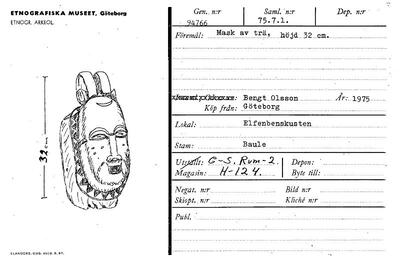 ETNOGRAFISKA MUSEET, Göteborg
ETNOGR. ARKEOL.
32 cm
Gen. n:r 94766
Saml. n:r 75.7.1.
Dep. n:r
Föremål: Mask av trä, höjd 32 cm.
Bengt Olsson År: 1975
Köp från: Göteborg
Lokal: Elfenbenskusten
Stam: Baule
Utställt: G-S. Rum-2. Depon:
Magasin: H-124. Byte till:
Negat. n:r Bild n:r
Skiopt. n:r Kliché n:r
Publ.